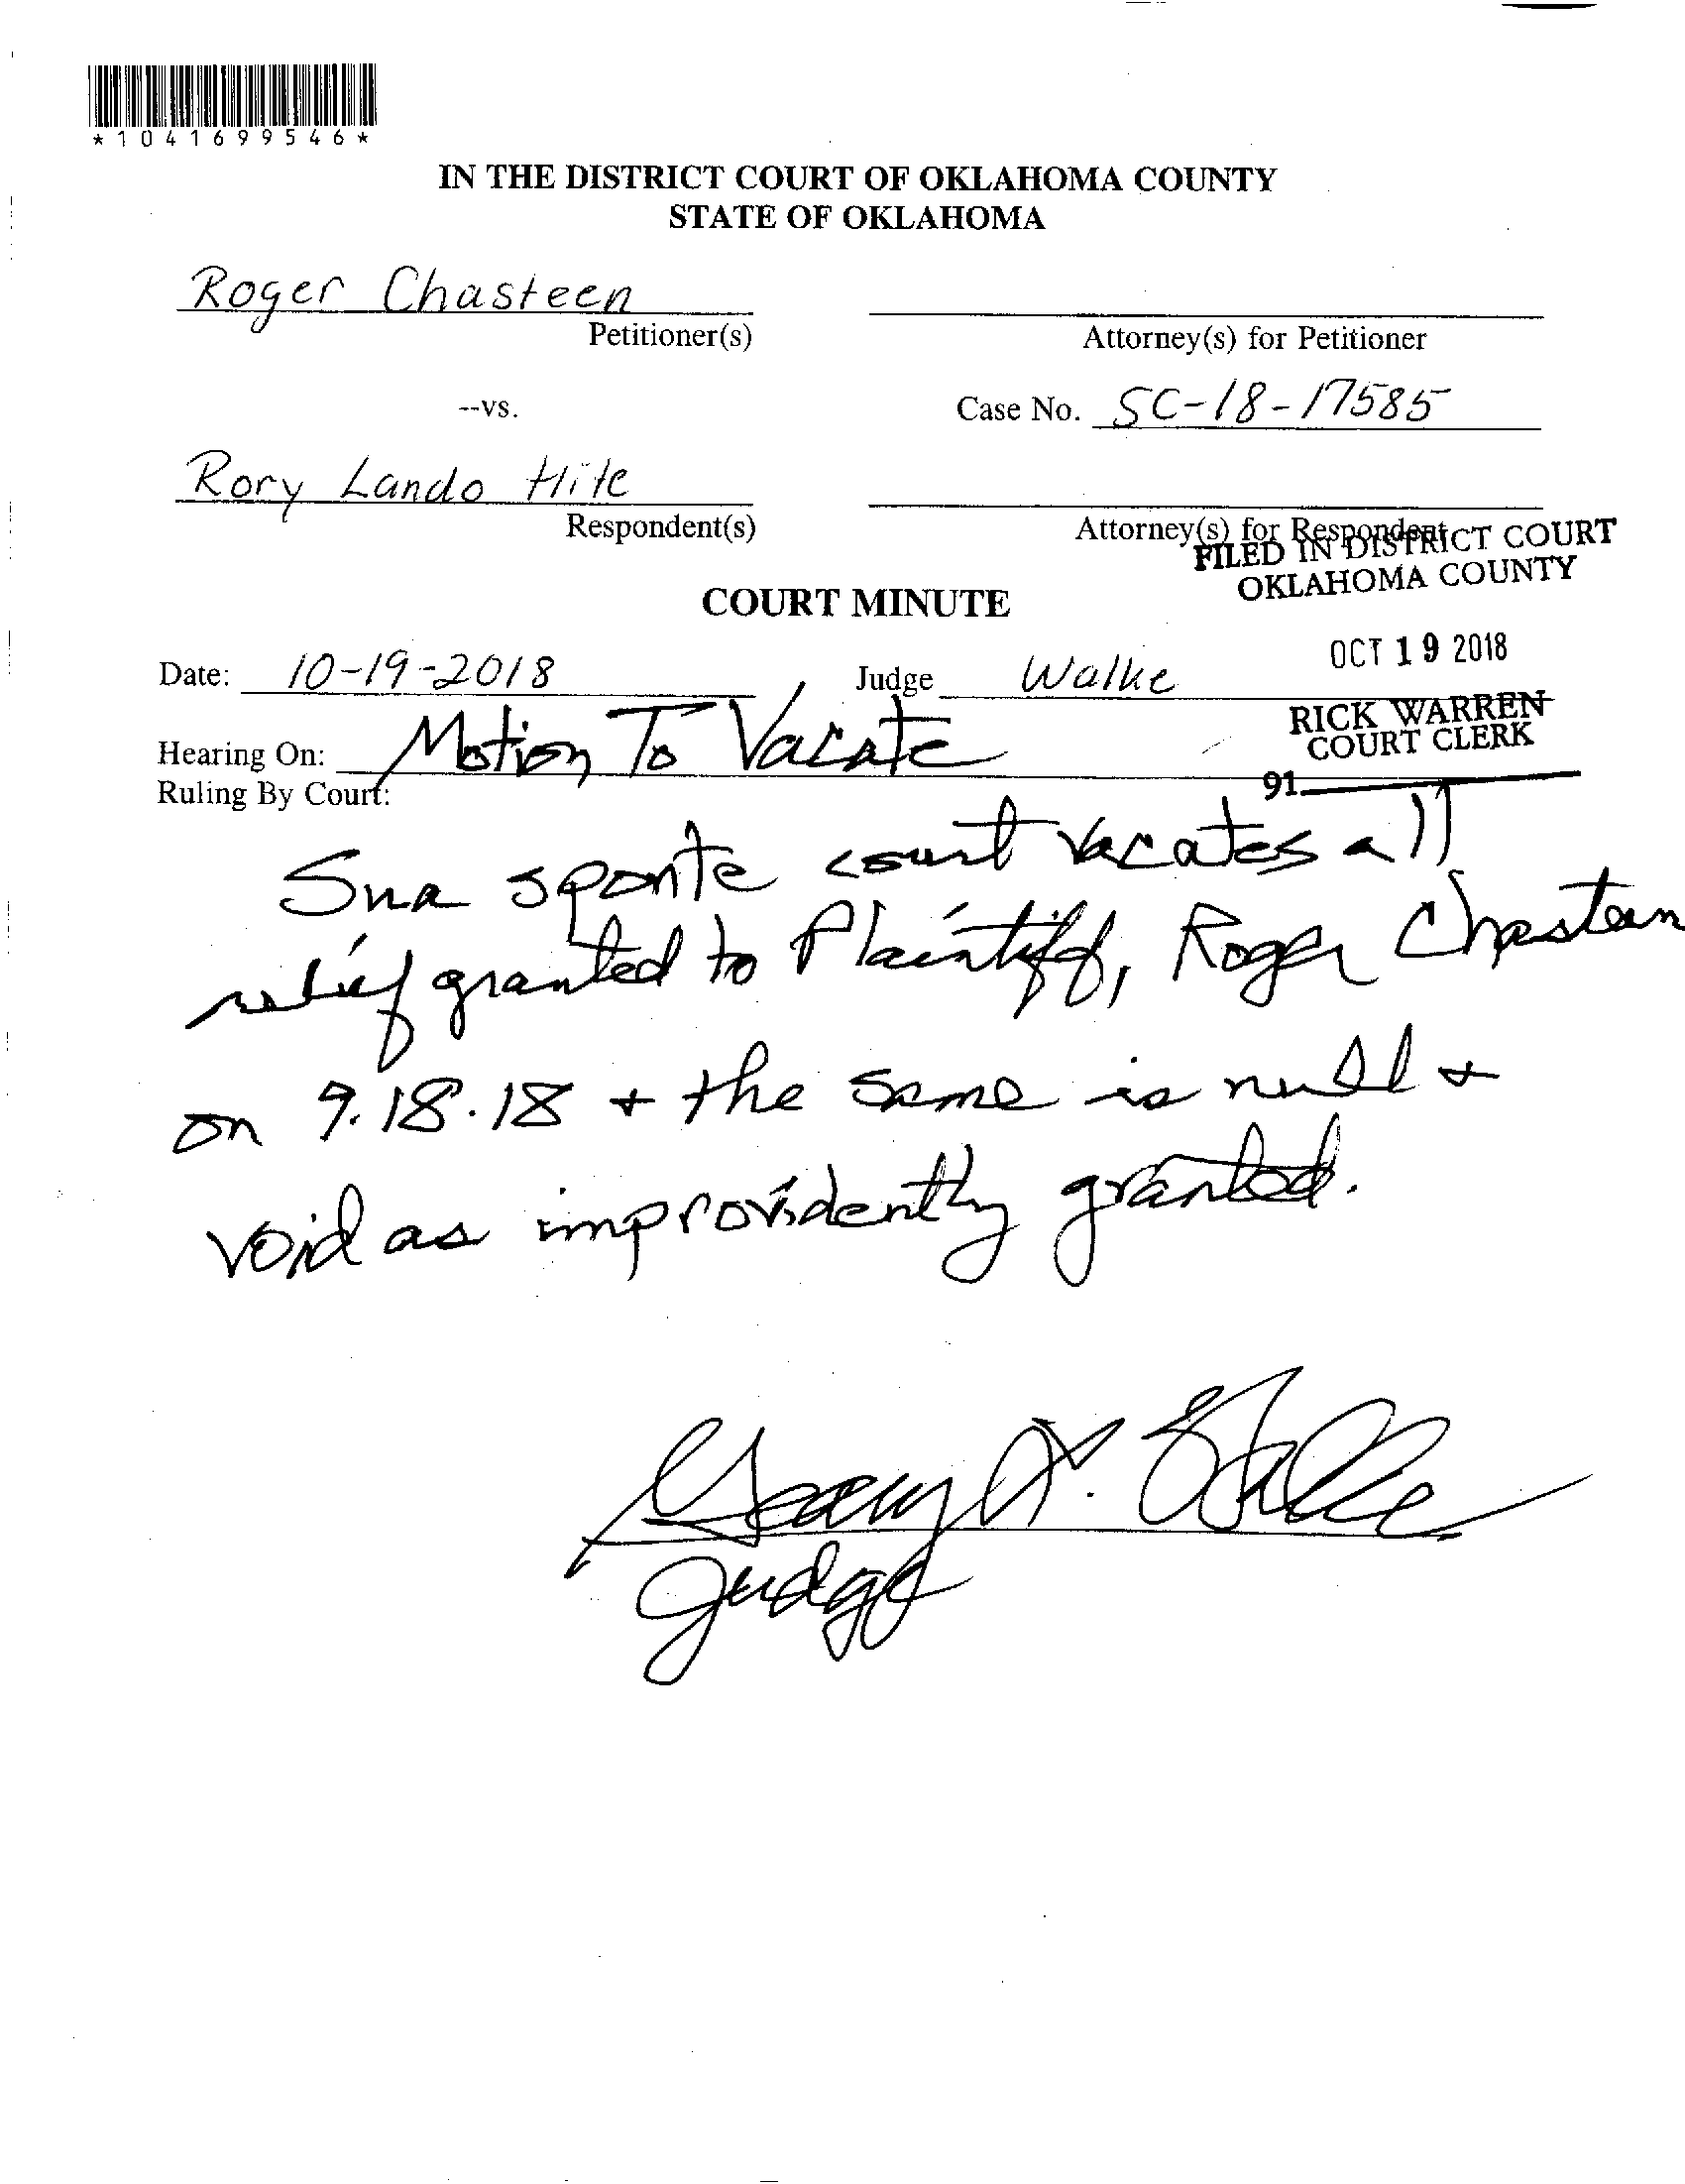 *1041699546*
IN THE DISTRICT COURT OF OKLAHOMA COUNTY
STATE OF OKLAHOMA
Roger Chasteen
Petitioner(s)
Attorney(s) for Petitioner
--vs.
Case No. SC-18-17585
Rory Lando Hite
Respondent(s)
Attorney(s) for Respondent
FILED IN DISTRICT COURT
OKLAHOMA COUNTY
COURT MINUTE
OCT 19 2018
Date: 10-19-2018 Judge Walke
RICK WARREN
COURT CLERK
Hearing On: Motion To Vacate
91
Ruling By Court:
Sua sponte court vacates all
relief granted to Plaintiff, Roger Chasteen
on 9.18.18 + the same is null +
void as improvidently granted.
Geary L. Walke
Judge